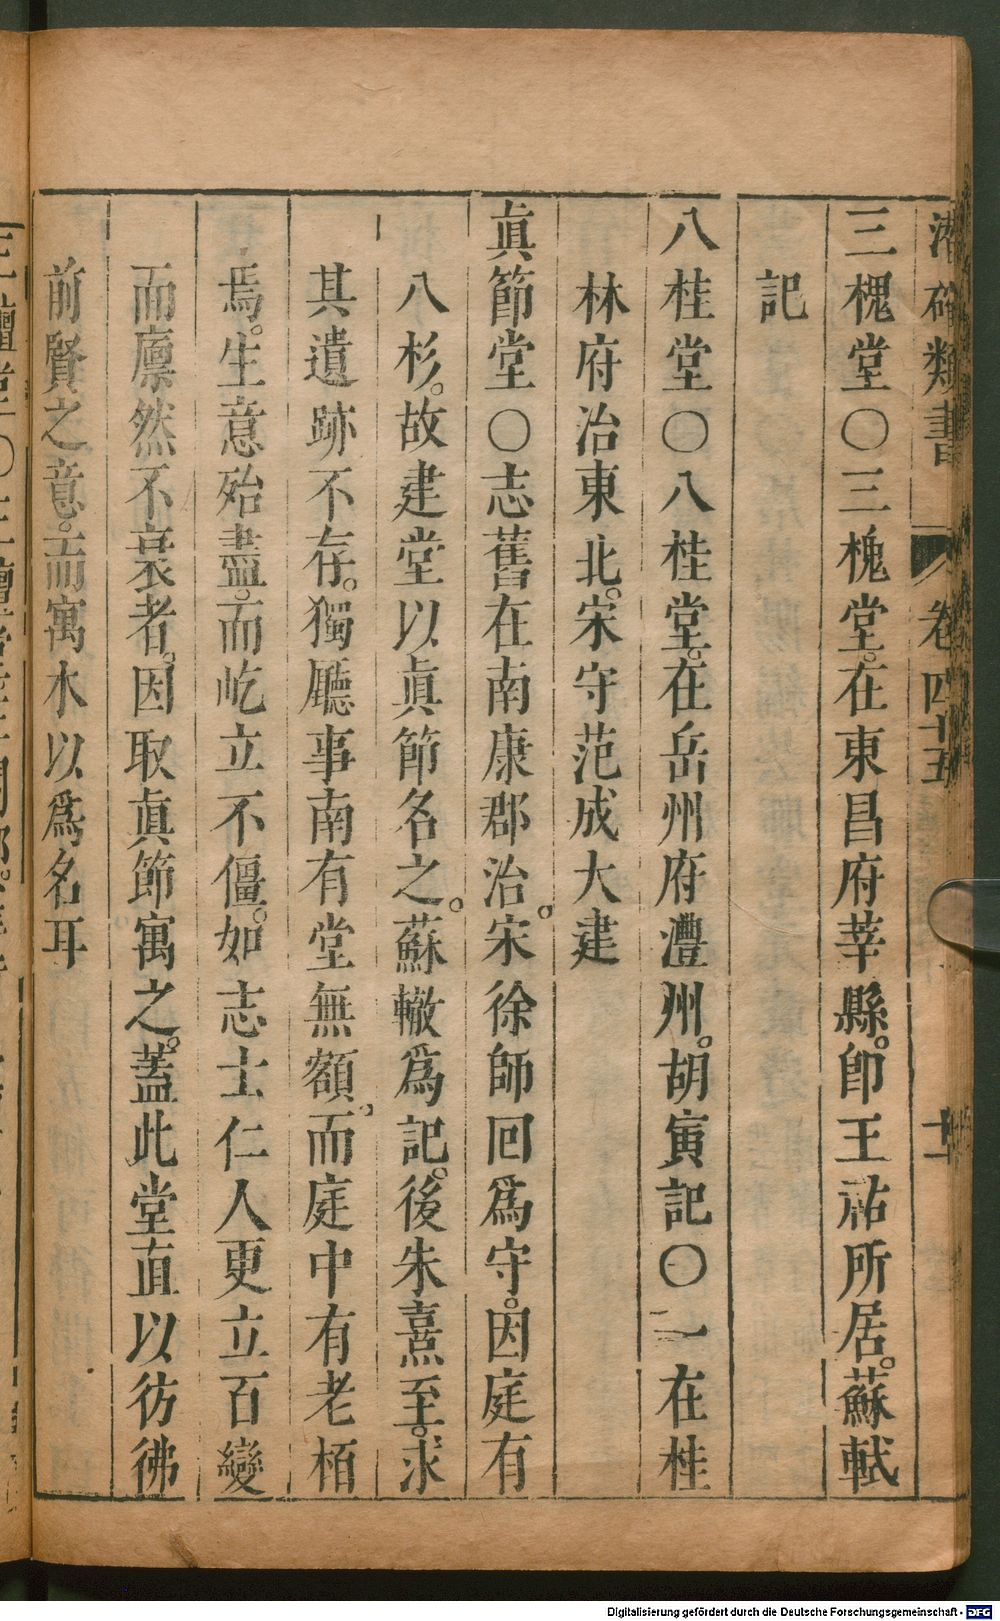 潛確類書 卷四十五 十二
三槐堂〇三槐堂。在東昌府莘縣。卽王祐所居。蘇軾
記
八桂堂〇八桂堂。在岳州府澧州。胡寅記〇一在桂
林府治東北。宋守范成大建
眞節堂〇志舊在南康郡治。宋徐師囘爲守。因庭有
八杉。故建堂以眞節名之。蘇轍爲記。後朱熹至。求
其遺跡不存。獨廳事南有堂無額。而庭中有老栢
焉。生意殆盡。而屹立不僵。如志士仁人更立百變
而廪然不衰者。因取眞節寓之。蓋此堂直以彷彿
前賢之意。而寓水以爲名耳
Digitalisierung gefördert durch die Deutsche Forschungsgemeinschaft - DFG